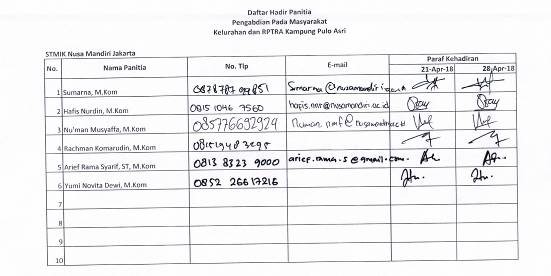 Daftar Hadir Panitia
Pengabdian Pada Masyarakat
Kelurahan dan RPTRA Kampung Pulo Asri
STMIK Nusa Mandiri Jakarta
No. Nama Panitia No. Tlp E-mail Paraf Kehadiran
21-Apr-18 28-Apr-18
1 Sumarna, M.Kom
2 Hafis Nurdin, M.Kom 0815 1046 7560 hafis.nrr@nusamandiri.ac.id
3 Nu'man Musyaffa, M.Kom 085776692924
4 Rachman Komarudin, M.Kom
5 Arief Rama Syarif, ST, M.Kom 0813 8323 9000 arief.rama.s@gmail.com
6 Yumi Novita Dewi, M.Kom 0852 26617216
7
8
9
10